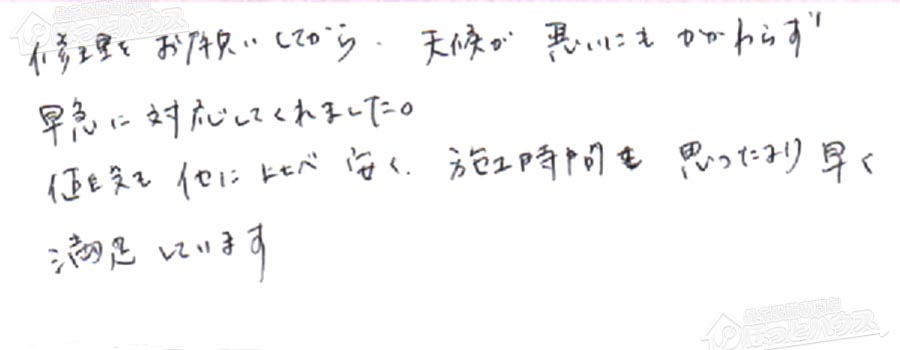 修理をお願いしてから、天候が悪いにもかかわらず
早急に対応してくれました。
値段も他に比べ安く、施工時間も思ったより早く
満足しています
ほっとハウス
ほっとハウス